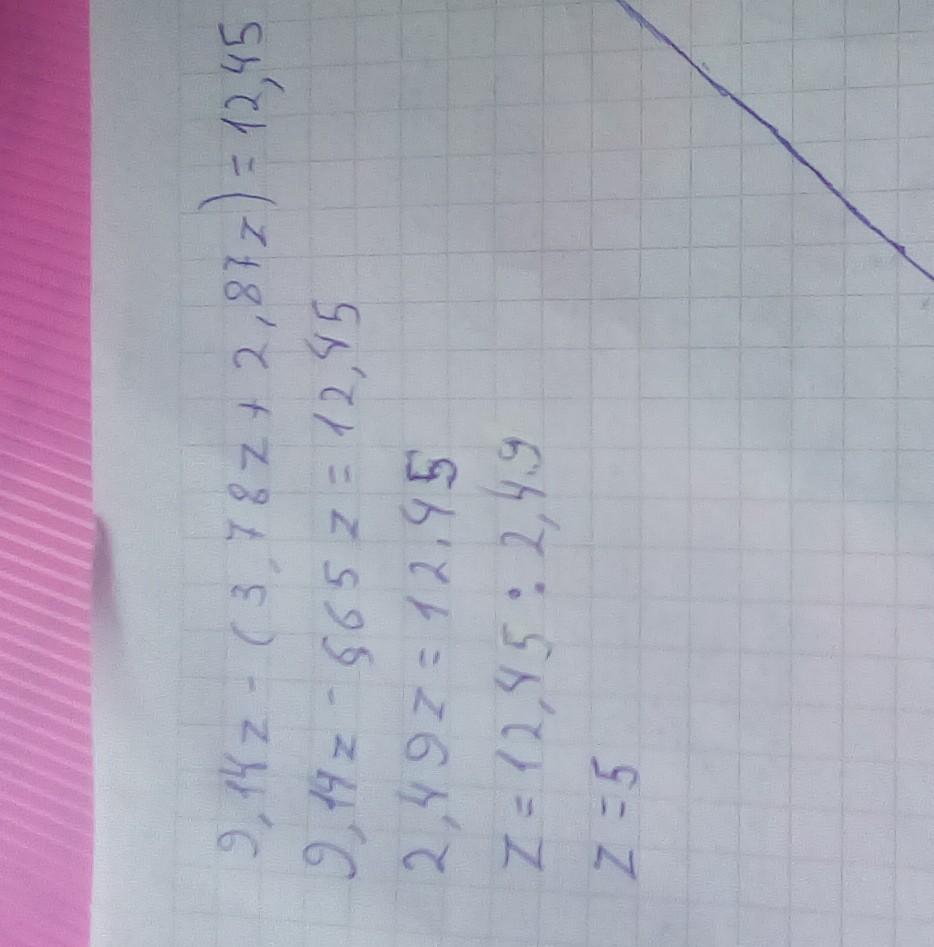 9,14z - (3,78z + 2,87z) = 12,45
9,14z - 665z = 12,45
2,49z = 12,45
z = 12,45 : 2,49
z = 5